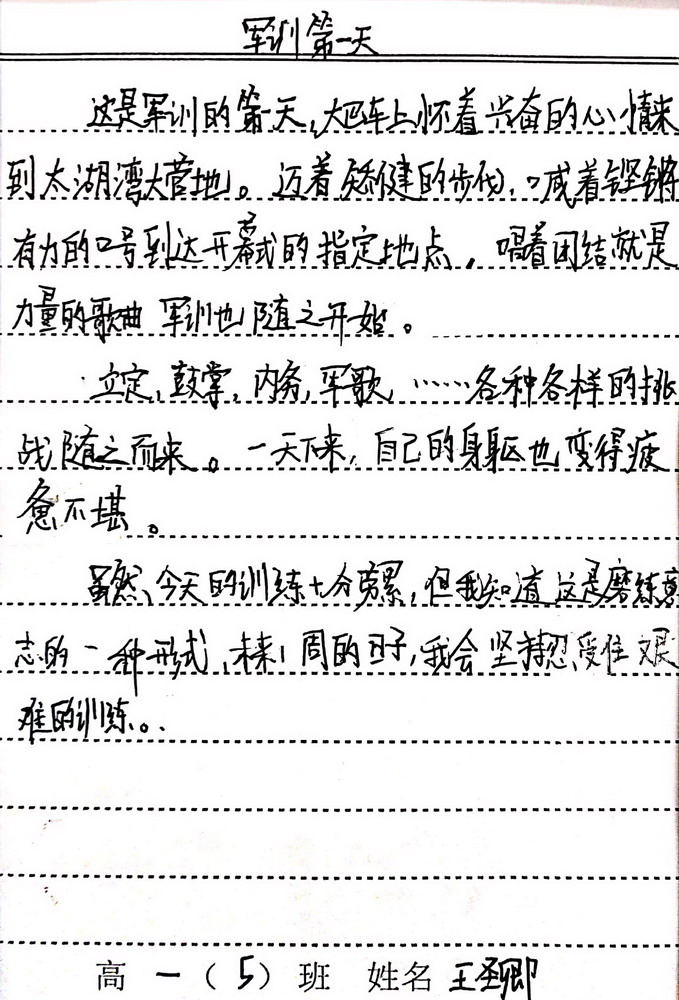 军训第一天
这是军训的第一天,大巴车上怀着兴奋的心情来
到太湖湾大营地。迈着矫健的步伐,喊着铿锵
有力的口号到达开幕式的指定地点,唱着团结就是
力量的歌曲 军训也随之开始。
立定,鼓掌,内务,军歌,……各种各样的挑
战随之而来。一天下来,自己的身躯也变得疲
惫不堪。
虽然,今天的训练十分劳累,但我知道这是磨练意
志的一种形式,未来1周的日子,我会坚持忍受住艰
难的训练。
高一(5)班 姓名 王圣卿